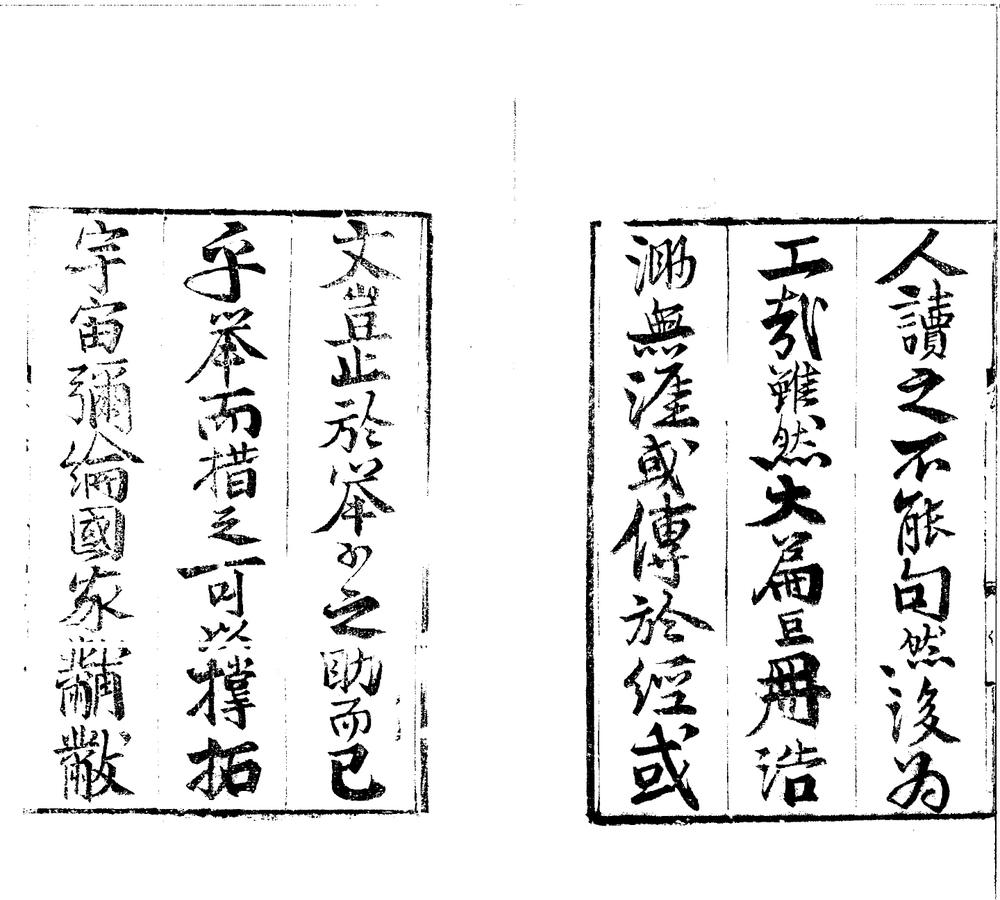 人讀之不能句然後為
工哉雖然大篇巨冊浩
渺無涯或傳於經或
文豈止於舉之助而已
乎舉而措之可以撑拓
宇宙彌綸國家黼黻